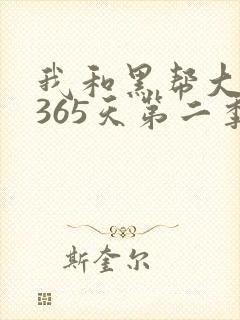 我和黑帮大
365天第二季
斯奎尔